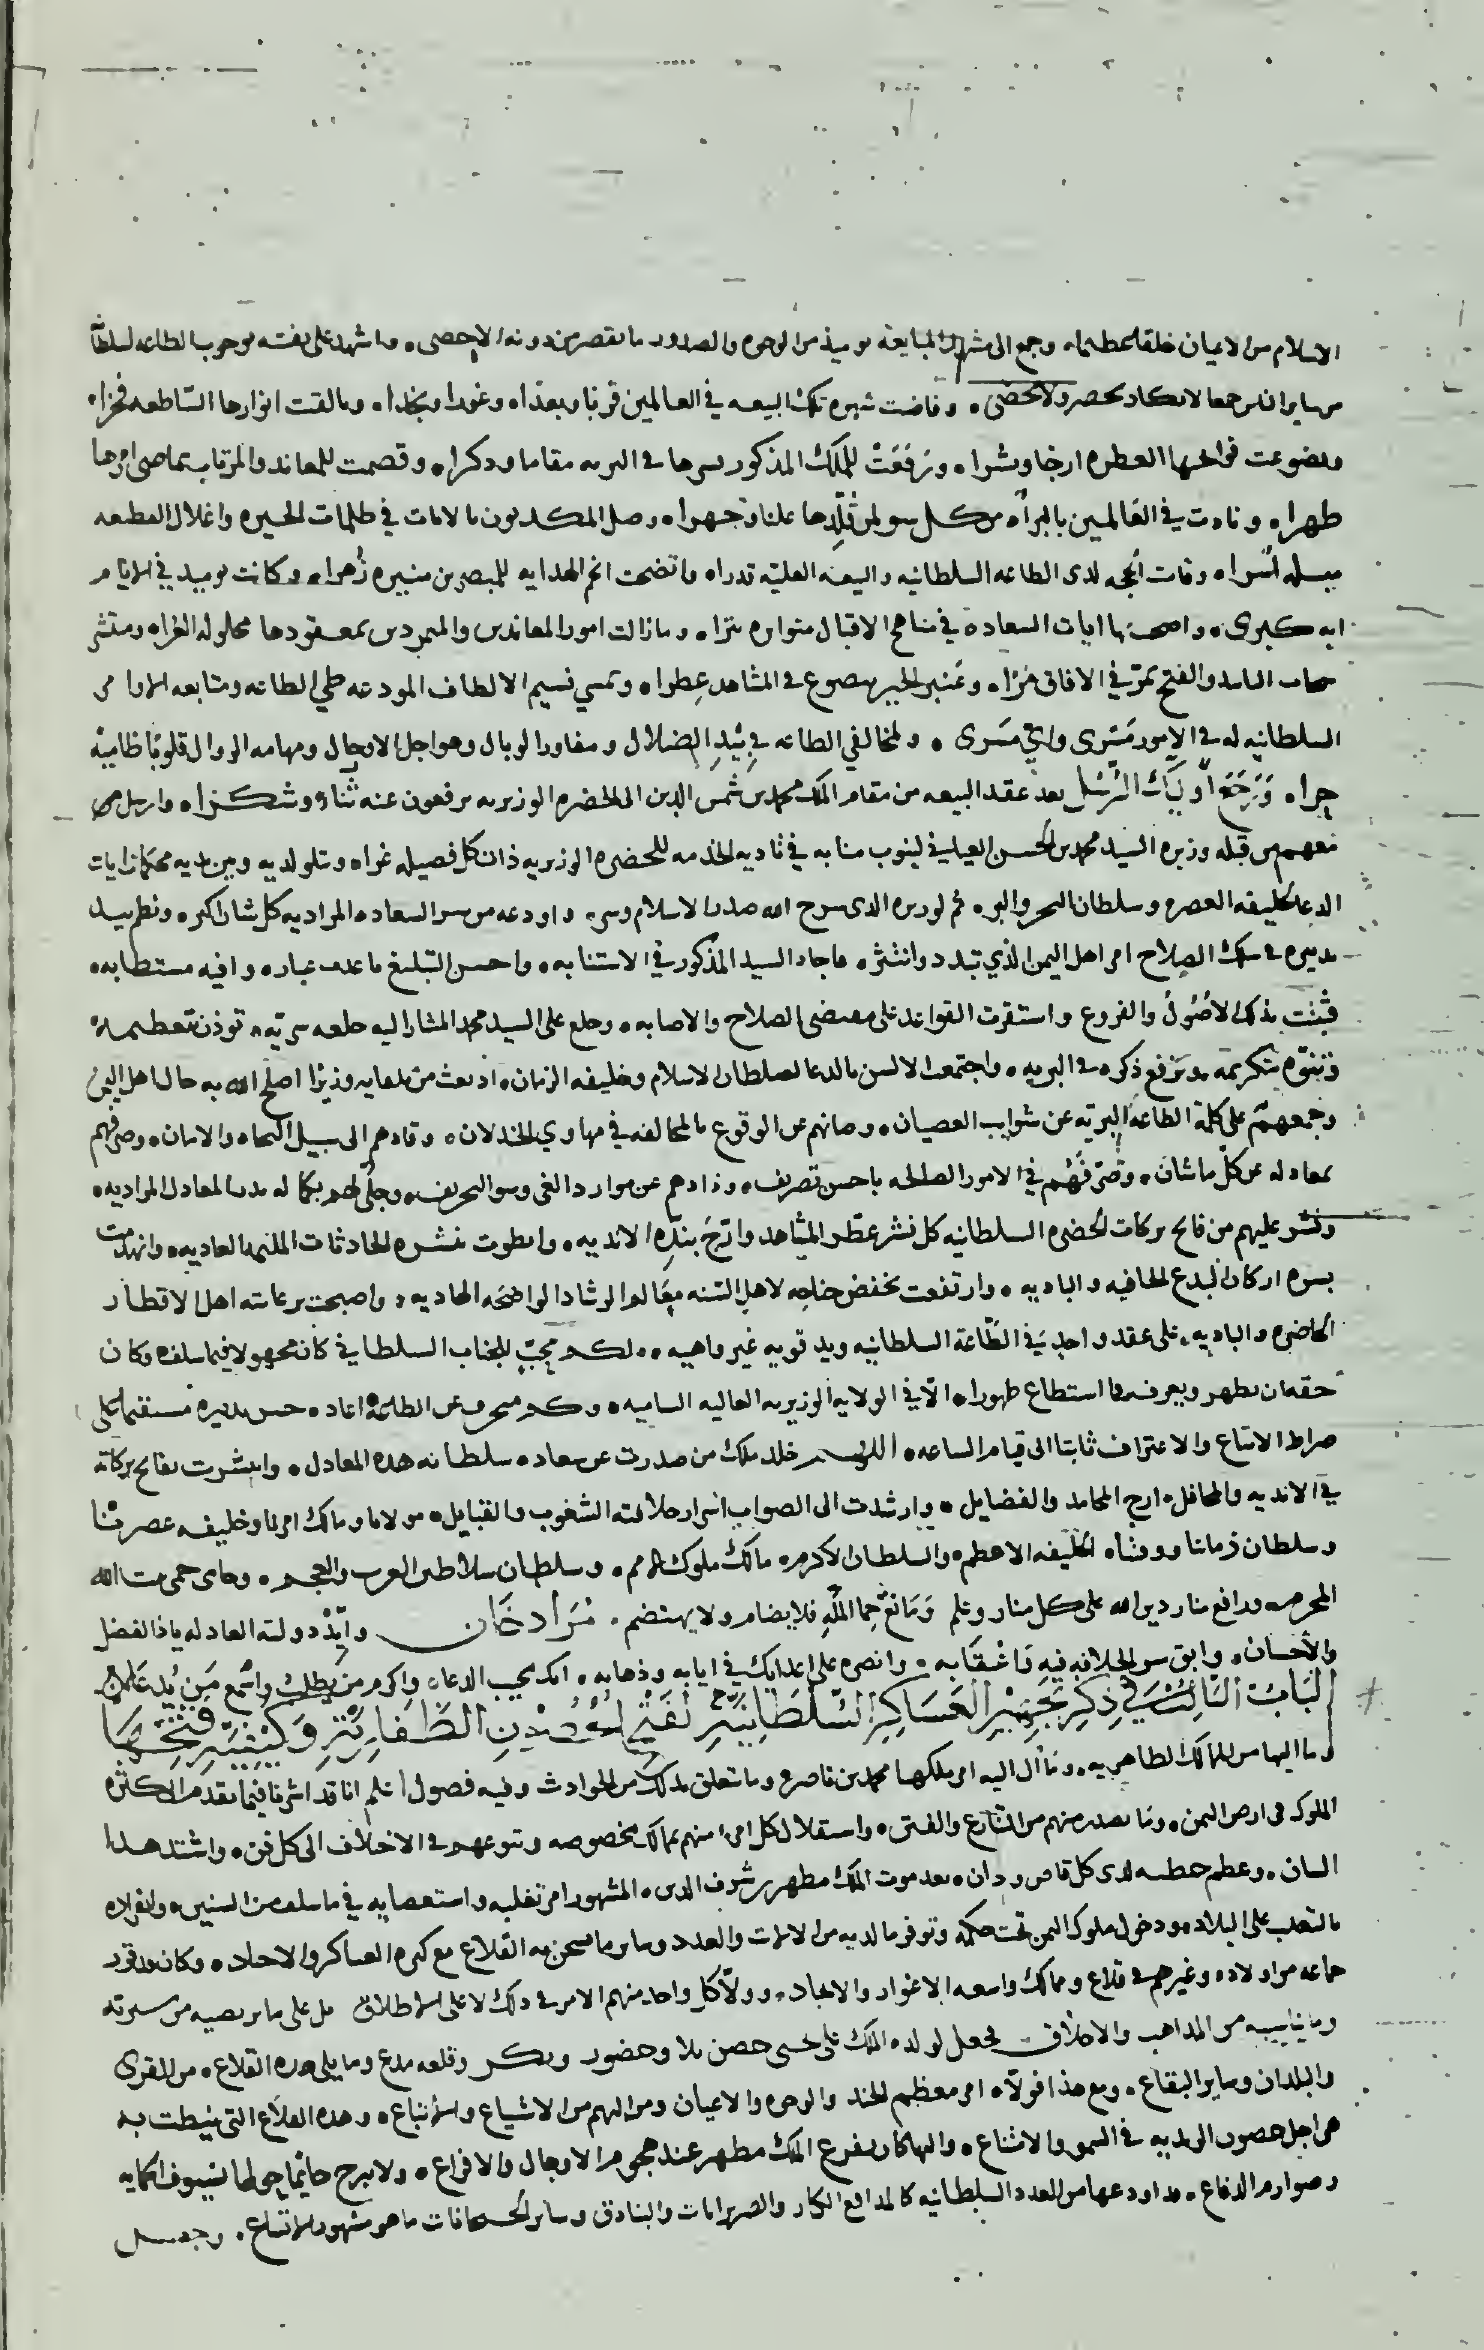 الاسلام من الاعيان خلقا عظيما، وجمع الى مشهد المبايعة يوميذ من الوجوه والصدور ما يقصر من دونه الاحصى، واشهد على نفسه بوجوب الطاعه لسلطان
من ساير الناس جمعا لا يكاد يحصر ولا يحصى، وفاضت شهرة تلك البيعه في العالمين قربا وبعدا، وغورا ونجدا، وتالقت انوارها الساطعه فجرا،
وتضوعت فوايحها العطره ارجا ونشرا، ورفعت للملك المذكور بسرها في البريه مقاما وذكرا، وقصمت للمعاند والمرتاب بماضي امرها
ظهرا، ونادت في العالمين بالبراه من كل سو لمن قلدها علنا وجهرا، وضل المكذبون بالايات في ظلمات الحيره واغلال القطيعه
لدى الطاعه السلطانيه والبيعه العليه قدرا، واتضحت انجم الهدايه للمبصرين منيره زهرا، وكانت يوميذ في الايام
ايه كبرى، واضحت بها ايات السعادة في مناهج الاقبال متواتره تترا، وما زالت امور المعاندين والمتمردين بمعقودها محلوله العرا، ومنتشر
سحاب التاييد والفتح تمر في الافاق مرا، وعنبر الخير يتضوع في المشاهد عطرا، وتمسي نسيم الالطاف المودعه طي الطاعه ومتابعه الاوامر
السلطانيه له في الامور مسرى واي مسرى، ولمخالفي الطاعه في بيد الضلال ومفاوز الوبال وهواجل الاوجال ومهامه الزوال قلوبا ظامية
حرا، ورجع اوليك الرسل بعد عقد البيعه من مقام الملك محمد بن شمس الدين الى الحضره الوزيريه يرفعون عنه ثناء وشكرا، وارسل
معهم من قبله وزيره السيد محمد بن الحسن العياني لينوب منابه في تاديه الخدمه للحضره الوزيريه ذات كل فضيله غرا، ويتلو لديه وبين يديه محكمات ايات
الدعا لخليفه العصر، وسلطان البحر والبر، ثم لوزيره الذي شرح الله صدر الاسلام وسر، واودعه من سر السعاده المراديه كل شان اكبر، ونظم بيد
تدبيره في سلك الصلاح امر اهل اليمن الذي تبدد وانتثر، فاجاد السيد المذكور في الاستنابه، واحسن التبليغ باعذب عباره وافيه مستطابه،
فثبتت بذلك الاصول والفروع واستقرت القواعد على مقتضى الصلاح والاصابه، وخلع على السيد محمد المشار اليه خلعه سريه، توذن بتعظيمه
وتنوه بتكريمه وترفع ذكره في البريه، واجتمعت الالسن بالدعا لسلطان الاسلام وخليفه الزمان، اذ بعث من تلقايه وزيرا اصلح الله به حال اهل اليمن
وجمعهم على كلمة الطاعه البريه عن شوايب العصيان، وصانهم عن الوقوع بالمخالفه في مهاوي الخذلان، وقادهم الى سبيل النجاه والامان، وصرفهم
بمعادله عن كل ما شان، وصرفهم في الامور الصالحه باحسن تصريف، وذادهم عن موارد الغي وسو التحريف، وجلى لهم بكماله بدر المعادل المراديه،
ونشر عليهم من فايح بركات الحضره السلطانيه كل نشر عطر المشاهد وارج بنده الانديه، وانطوت بنشره الحادثات الملمه العاديه، وانهدمت
بسره اركان البدع الخافيه والباديه، وارتفعت بخفض جناحه لاهل السنه معالم الرشاد الواضحه الهاديه، واصبحت برعايته اهل الاقطار
الحاضره والباديه، على عقد واحد في الطاعة السلطانيه ويد قويه غير واهيه، ولكم محب للجناب السلطاني كان مجهولا فيما سلف، وكان
حقه ان يظهر ويعرف، فما استطاع ظهورا، الا في الولايه الوزيريه العاليه الساميه، وكم منحرف عن الطاعه اعاده حسن تدبيره مستقيما على
صراط الاتباع والاعتراف ثابتا الى قيام الساعه، اللهم خلد ملك من صدرت عن سعاده سلطانه هذه المعادل، وانتشرت بفايح بركاته
في الانديه والمحافل، ارج المحامد والفضايل، وارشدت الى الصواب اسرار خلافته الشعوب والقبايل، مولانا ومالك امرنا وخليفه عصرنا
وسلطان زماننا ووقتنا، الخليفه الاعظم، والسلطان الاكرم، مالك ملوك الامم، وسلطان سلاطين العرب والعجم، وحامي حمى بيت الله
المحرم، ورافع منار دين الله على كل منار وعلم ومانع حمى الله فلا يضام ولا يهتضم، مراد خان وايد دولته العادله ياذا الفضل
والاحسان، وابق سر الخلافه فيه واعقابه، وانصره على اعدايك في ايابه وذهابه، انك مجيب الدعا، واكرم من يطلب واسمع من
الباب الثالث في ذكر تجهيز العساكر السلطانية لفتح الظفارية وكيفية فتحها
وما اليها من الممالك الظاهريه، وما ال اليه امر ملكها محمد بن ناصر، وما يتعلق بذلك من الحوادث وفيه فصول اعلم انا قد اشرنا فيما تقدم الى كثرة
الملوك في ارض اليمن، وما يصدر منهم من التنازع والفتن، واستقلال كل امرء منهم بممالك مخصوصه وتنوعهم في الاختلاف الى كل فن، واشتد هذا
الشان، وعظم خطبه لدى كل قاص ودان، بعد موت الملك مطهر بن شرف الدين، المشهور امر تغلبه واستعصايه في ما سلف من السنين، وانفراده
بالتغلب على البلاد، ودخول ملوك اليمن تحت حكمه وتوفر ما لديه من الالات والعدد وساير ما يشحن به القلاع مع كثره العساكر والاجناد، وكان قد قرر
جماعه من اولاده وغيرهم في قلاع وممالك واسعه الاغوار والانجاد، وولا كل واحد منهم الامر في ذلك لا على الاطلاق بل على ما يرتضيه من سيرته
وما يناسبه من المذاهب والاخلاق فجعل لولده الملك علي يحيى حصن ثلا وحضور وبكر وقلعه مدع وما يلي هذه القلاع، من القرى
والبلدان وساير البقاع، ومع هذا فولاه امر معظم الجند والوجوه والاعيان ومن اليهم من الاشياع والاتباع، وهذه القلاع التي نيطت به
هي اجل حصون الزيديه في السمو والامتناع، واليها كان يفزع الملك مطهر عند هجوم الاوجال والافزاع، ولا يبرح حايما حولها بسيوف الحمايه
وصوارم الدفاع، قد اودعها من العدد السلطانيه كالمدافع الكبار والضربزانات والبنادق وساير الحصانات ما هو مشهور الامتناع، وجعل